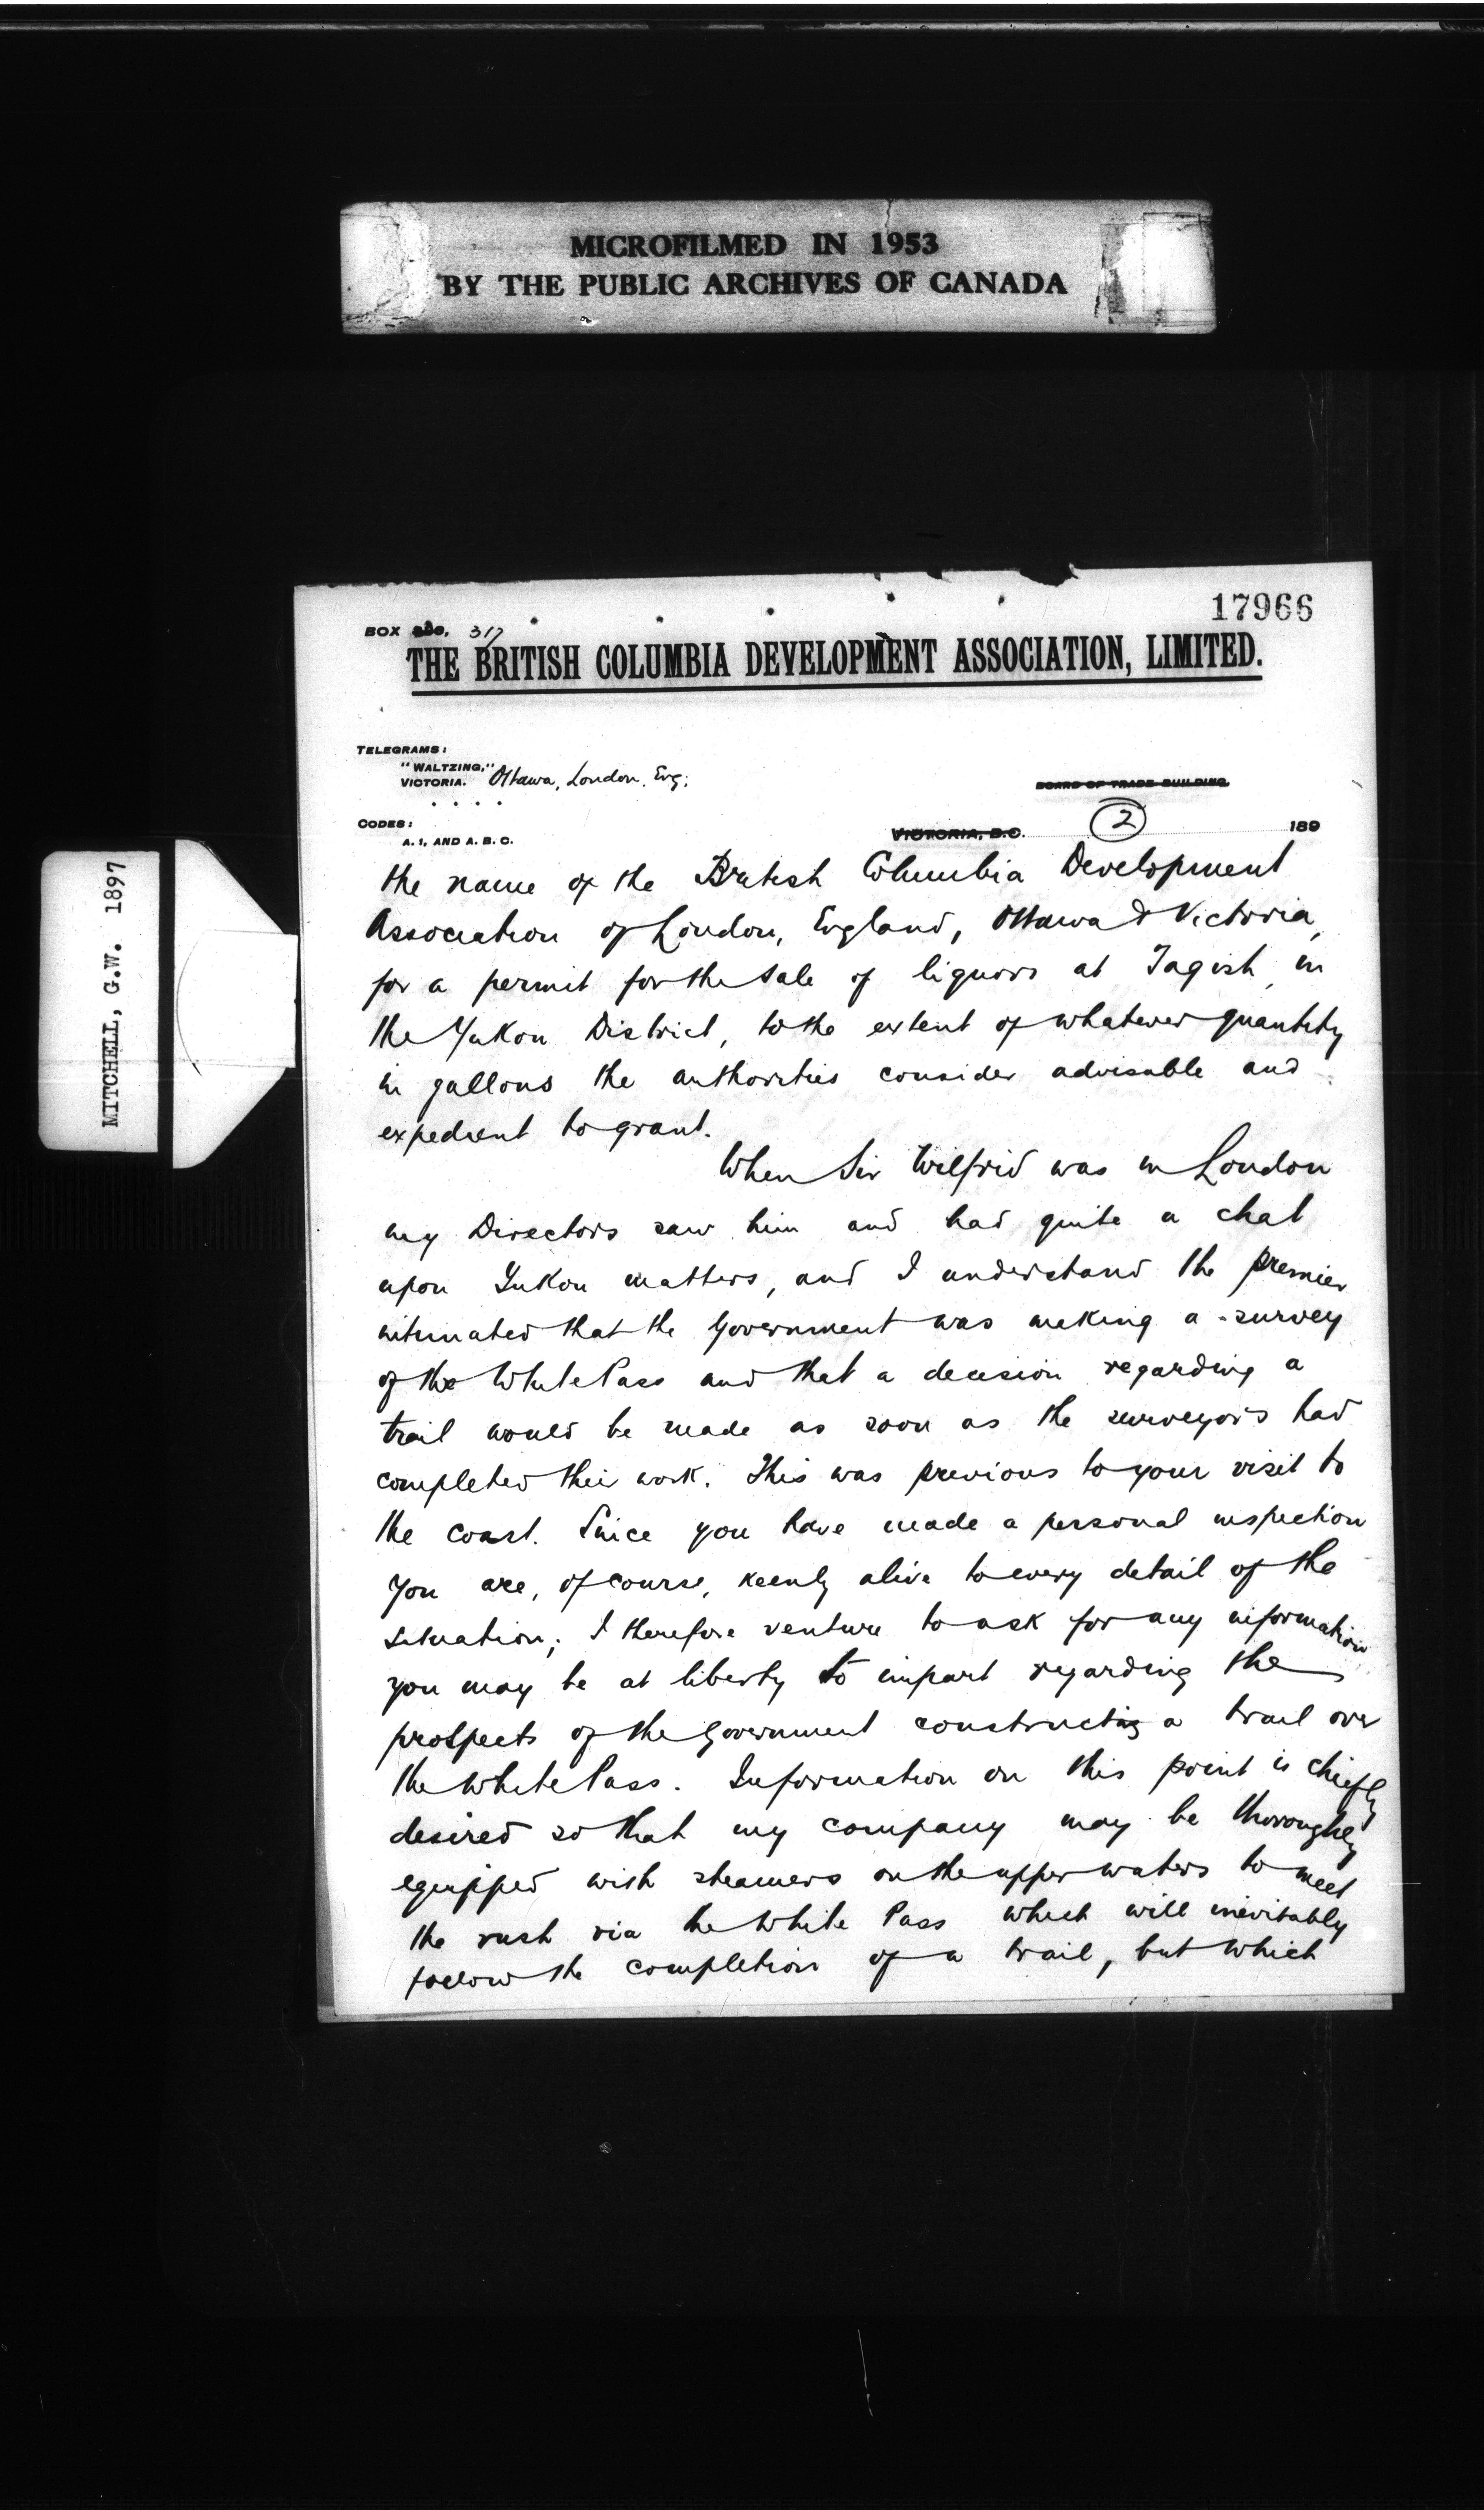 MICROFILMED IN 1953
BY THE PUBLIC ARCHIVES OF CANADA
MITCHELL, G.W. 1897
17966
BOX 317
THE BRITISH COLUMBIA DEVELOPMENT ASSOCIATION, LIMITED.
TELEGRAMS:
"WALTZING,"
VICTORIA. Ottawa, London. Eng:
BOARD OF TRADE BUILDING,
CODES:
A. 1, AND A. B. C.
VICTORIA, B.C. 2 189
the name of the British Columbia Development
Association of London, England, Ottawa & Victoria,
for a permit for the sale of liquors at Tagish, in
the Yukon District, to the extent of whatever quantity
in gallons the authorities consider advisable and
expedient to grant.
When Sir Wilfrid was in London
my Directors saw him and had quite a chat
upon Yukon matters, and I understand the premier
intimated that the Government was making a survey
of the White Pass and that a decision regarding a
trail would be made as soon as the surveyors had
completed their work. This was previous to your visit to
the coast. Since you have made a personal inspection
you are, of course, keenly alive to every detail of the
situation; I therefore venture to ask for any information
you may be at liberty to impart regarding the
prospects of the Government constructing a trail over
the White Pass. Information on this point is chiefly
desired so that my company may be thoroughly
equipped with steamers on the upper waters to meet
the rush via the White Pass which will inevitably
follow the completion of a trail, but which